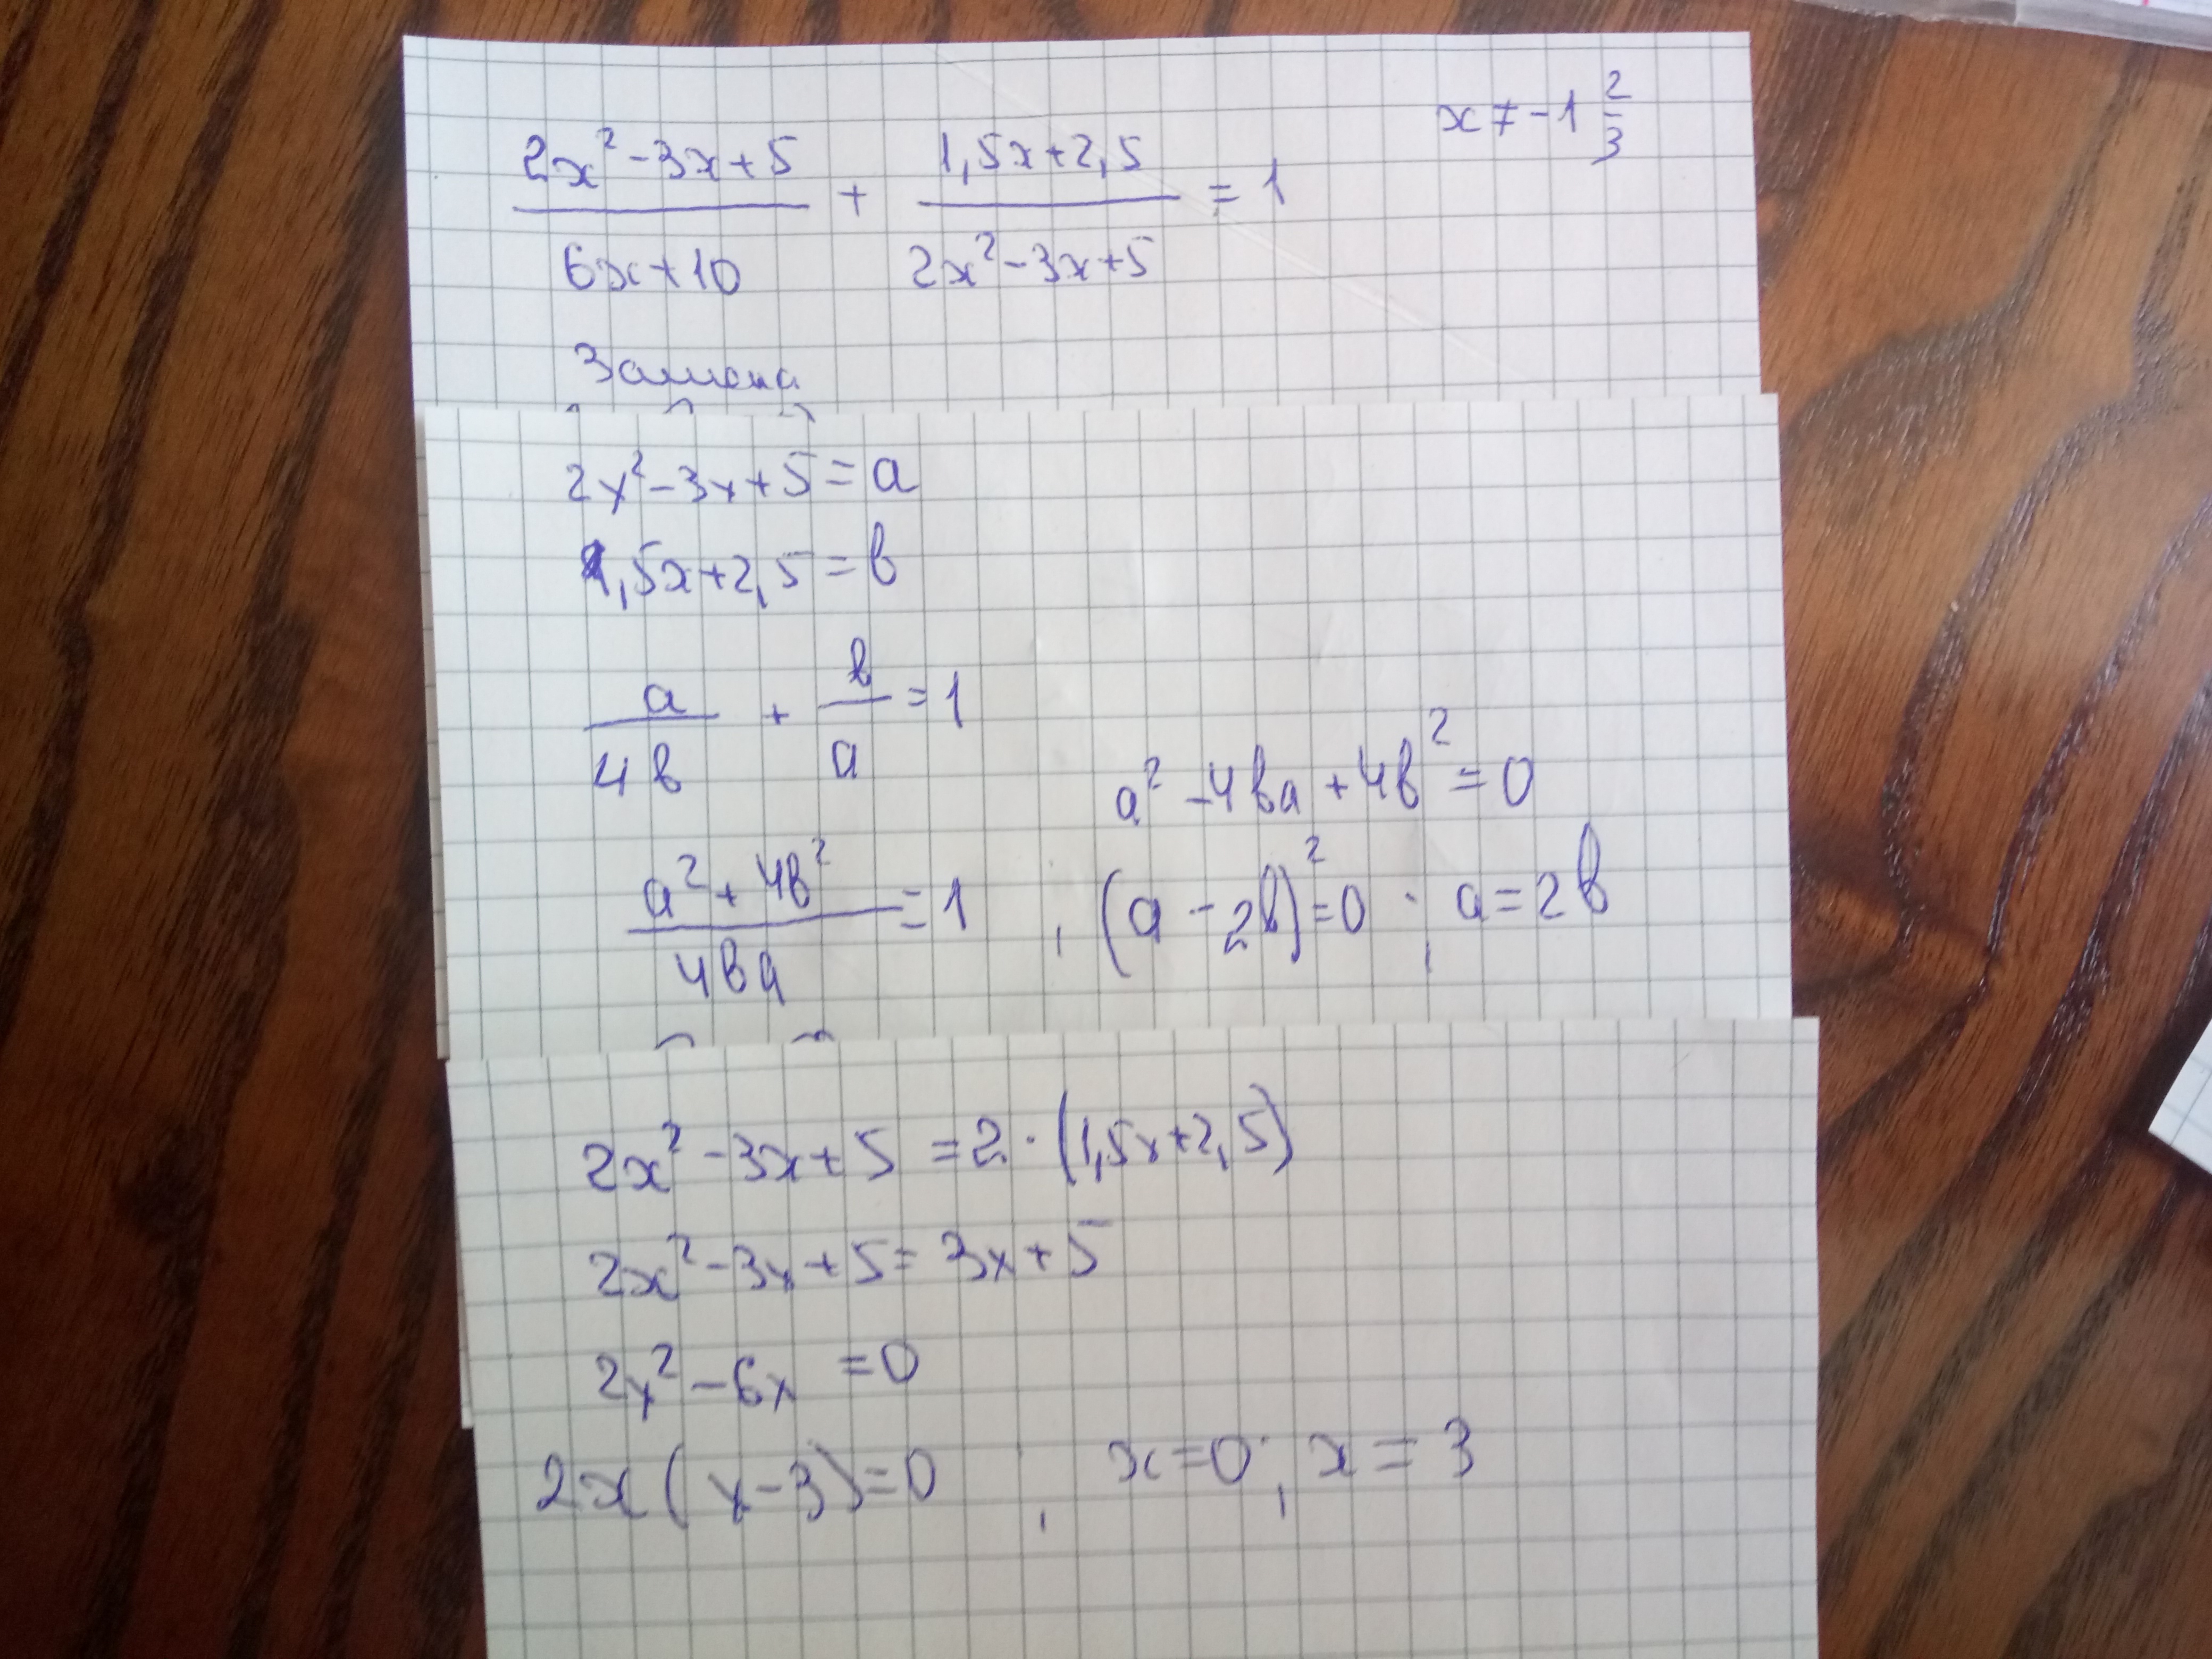 (2x² - 3x + 5)/(6x + 10) + (1,5x + 2,5)/(2x² - 3x + 5) = 1   x ≠ -1 2/3
Замена
2x² - 3x + 5 = a
1,5x + 2,5 = b
a/(4b) + b/a = 1
a² - 4ba + 4b² = 0
(a² + 4b²)/(4ba) = 1 , (a - 2b)² = 0 ; a = 2b
2x² - 3x + 5 = 2 · (1,5x + 2,5)
2x² - 3x + 5 = 3x + 5
2x² - 6x = 0
2x(x - 3) = 0 , x = 0 ; x = 3